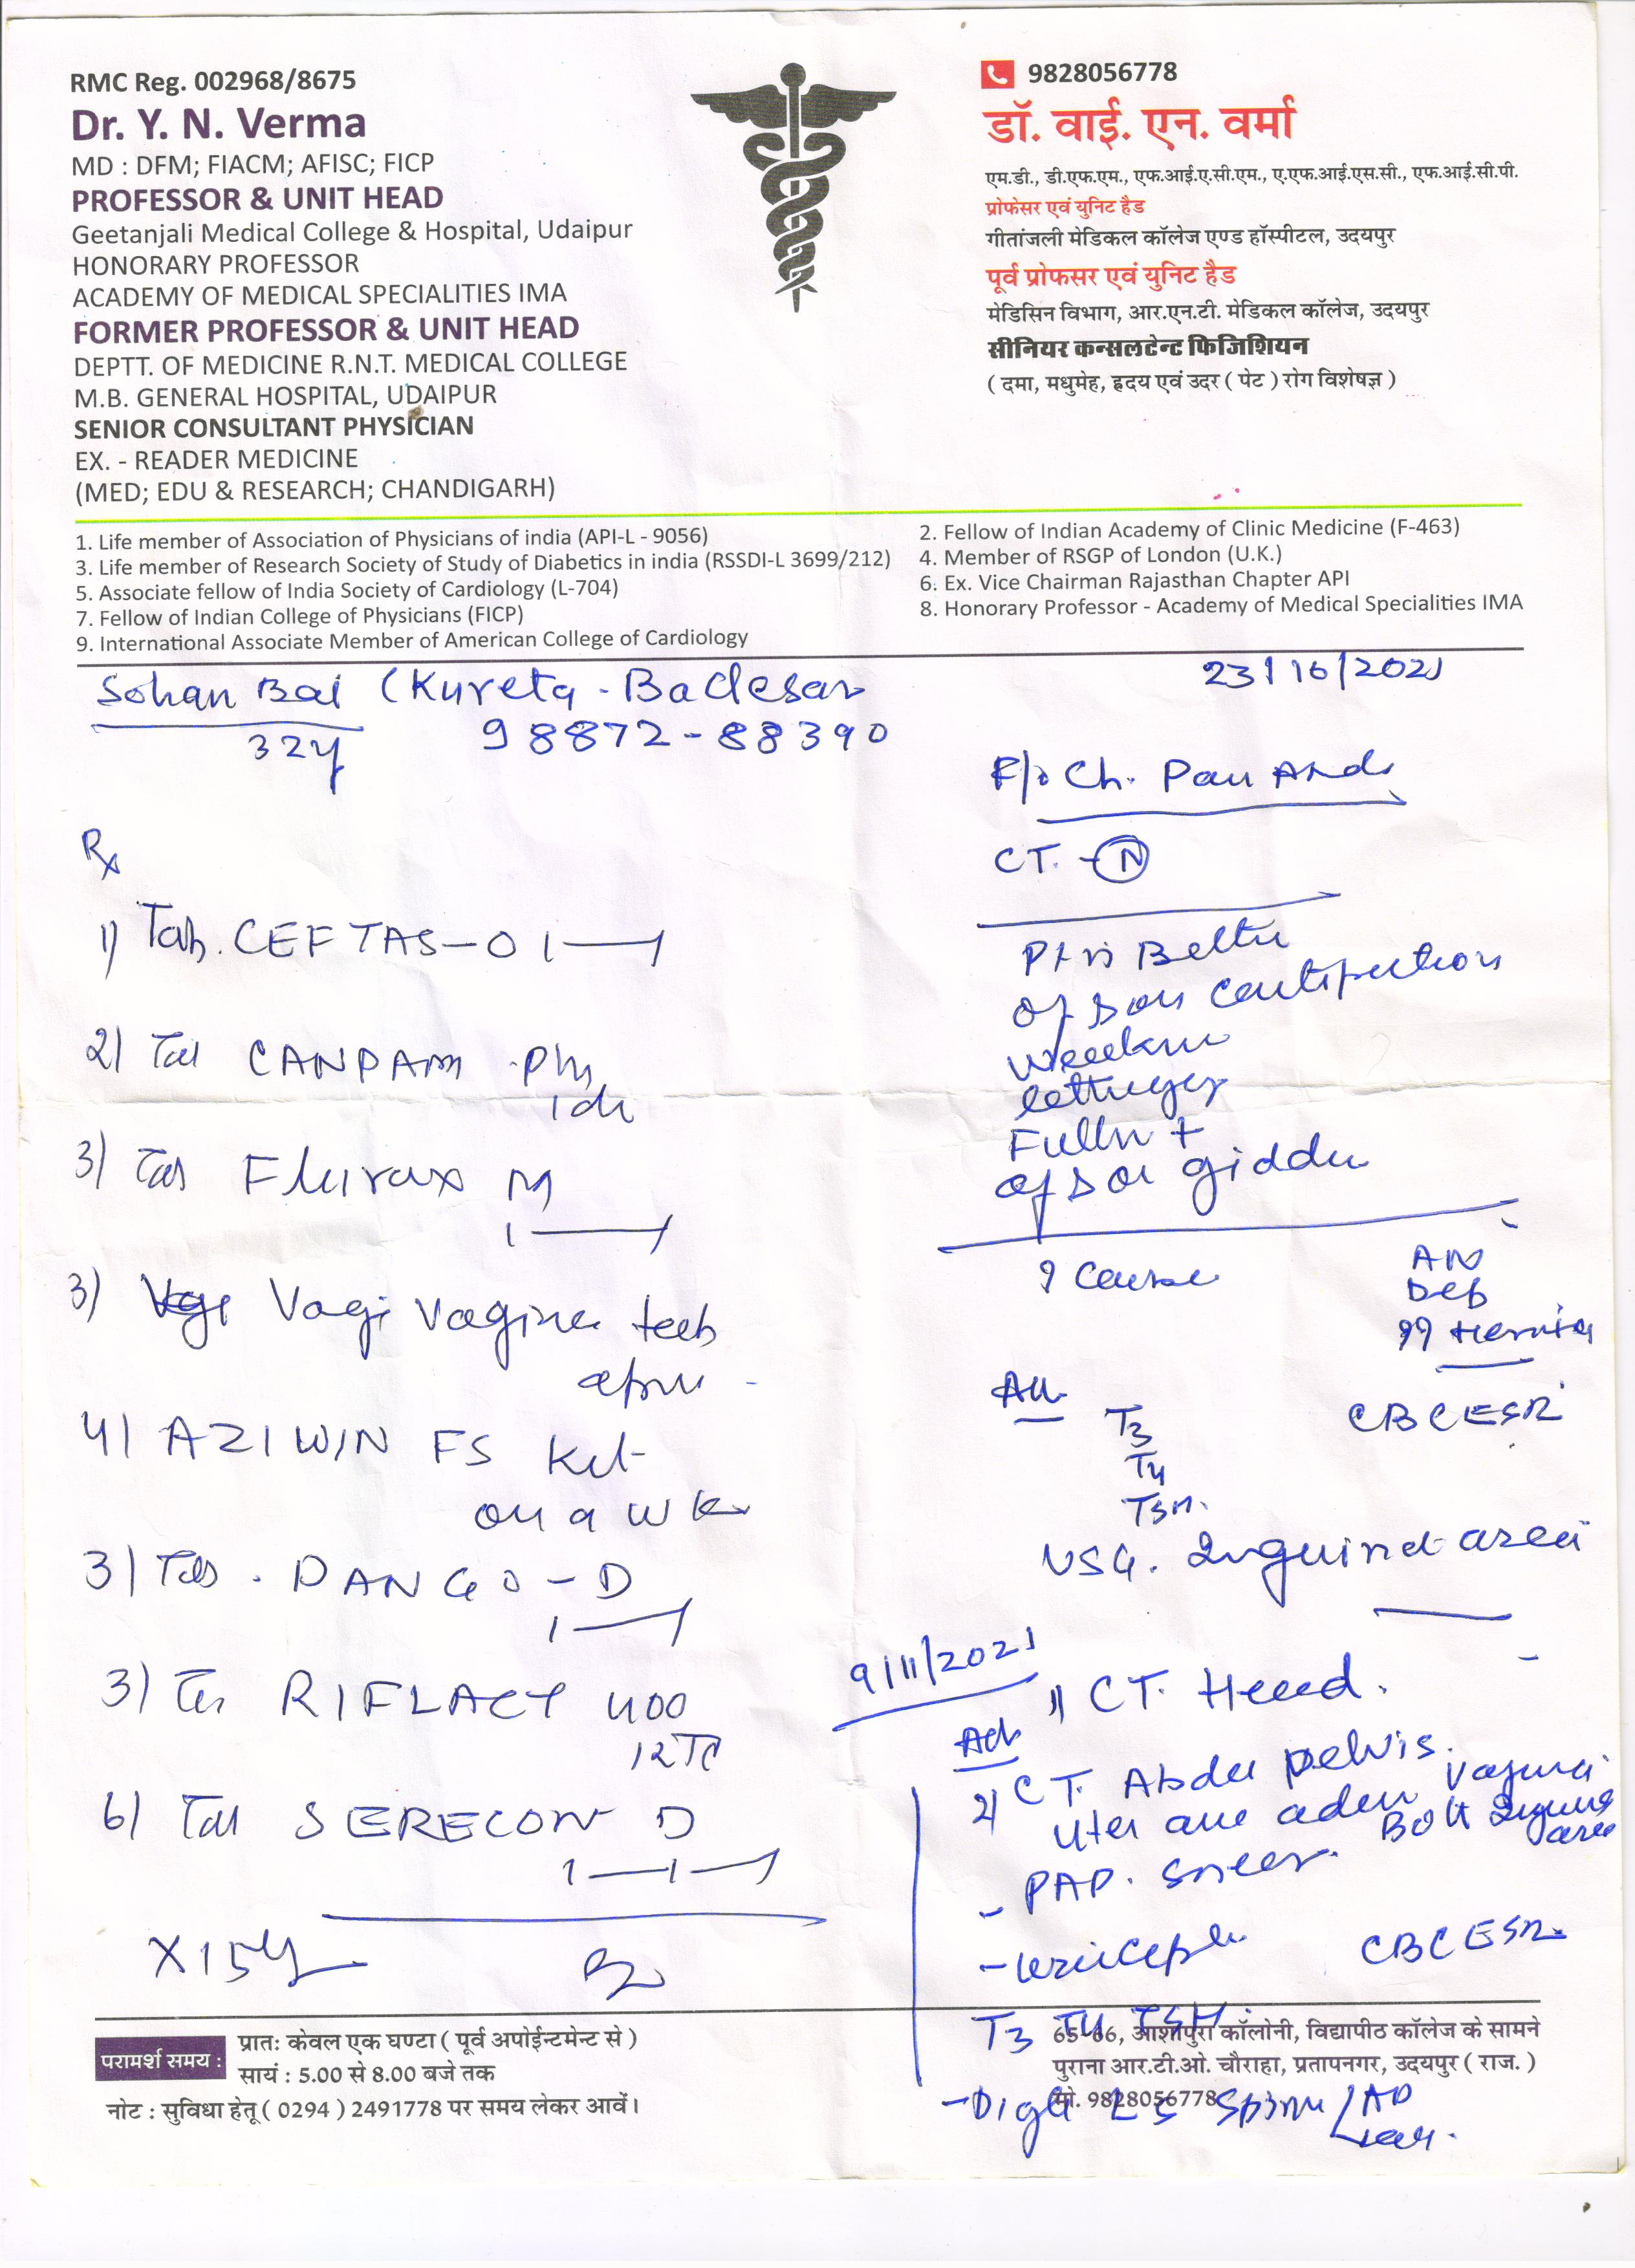 RMC Reg. 002968/8675
Dr. Y. N. Verma
MD : DFM; FIACM; AFISC; FICP
PROFESSOR & UNIT HEAD
Geetanjali Medical College & Hospital, Udaipur
HONORARY PROFESSOR
ACADEMY OF MEDICAL SPECIALITIES IMA
FORMER PROFESSOR & UNIT HEAD
DEPTT. OF MEDICINE R.N.T. MEDICAL COLLEGE
M.B. GENERAL HOSPITAL, UDAIPUR
SENIOR CONSULTANT PHYSICIAN
EX. - READER MEDICINE
(MED; EDU & RESEARCH; CHANDIGARH)
9828056778
डॉ. वाई. एन. वर्मा
एम.डी., डी.एफ.एम., एफ.आई.ए.सी.एम., ए.एफ.आई.एस.सी., एफ.आई.सी.पी.
प्रोफेसर एवं युनिट हैड
गीतांजली मेडिकल कॉलेज एण्ड हॉस्पीटल, उदयपुर
पूर्व प्रोफसर एवं युनिट हैड
मेडिसिन विभाग, आर.एन.टी. मेडिकल कॉलेज, उदयपुर
सीनियर कन्सलटेन्ट फिजिशियन
( दमा, मधुमेह, हृदय एवं उदर ( पेट ) रोग विशेषज्ञ )
1. Life member of Association of Physicians of india (API-L - 9056)
2. Fellow of Indian Academy of Clinic Medicine (F-463)
3. Life member of Research Society of Study of Diabetes in india (RSSDI-L 3699/212)
4. Member of RSGP of London (U.K.)
5. Associate fellow of India Society of Cardiology (L-704)
6. Ex. Vice Chairman Rajasthan Chapter API
7. Fellow of Indian College of Physicians (FICP)
8. Honorary Professor - Academy of Medical Specialities IMA
9. International Associate Member of American College of Cardiology
Sohan Bai (Kureta - Badesar
23/10/2021
32y 98872-88390
Rx
1) Tab. CEFTAS-O 1—1
2) Tab CANPAM
3) Tab M
1—1
3) Vagi
4) AZIWIN FS Kit
on a wk
3) Tab. DANGO-D
1—1
3) Tab RIFLACT 400
6) Tab SERECON D
1—1—1
X15
Ch. Pain
CT. - N
Pt is Better
+
? Cause
Hernia
Adv
T3
T4
TSH.
CBC ESR
USG. Inguinal area
9/11/2021
Adv
1) CT. Head.
2) CT. Abdo pelvis.
- PAP. smear.
CBC ESR
T3 T4 TSH.
L S Spine
परामर्श समय :
प्रातः केवल एक घण्टा ( पूर्व अपोईन्टमेन्ट से )
सायं : 5.00 से 8.00 बजे तक
नोट : सुविधा हेतू ( 0294 ) 2491778 पर समय लेकर आवें।
65-66, आशापुरा कॉलोनी, विद्यापीठ कॉलेज के सामने
पुराना आर.टी.ओ. चौराहा, प्रतापनगर, उदयपुर ( राज. )
मो. 9828056778